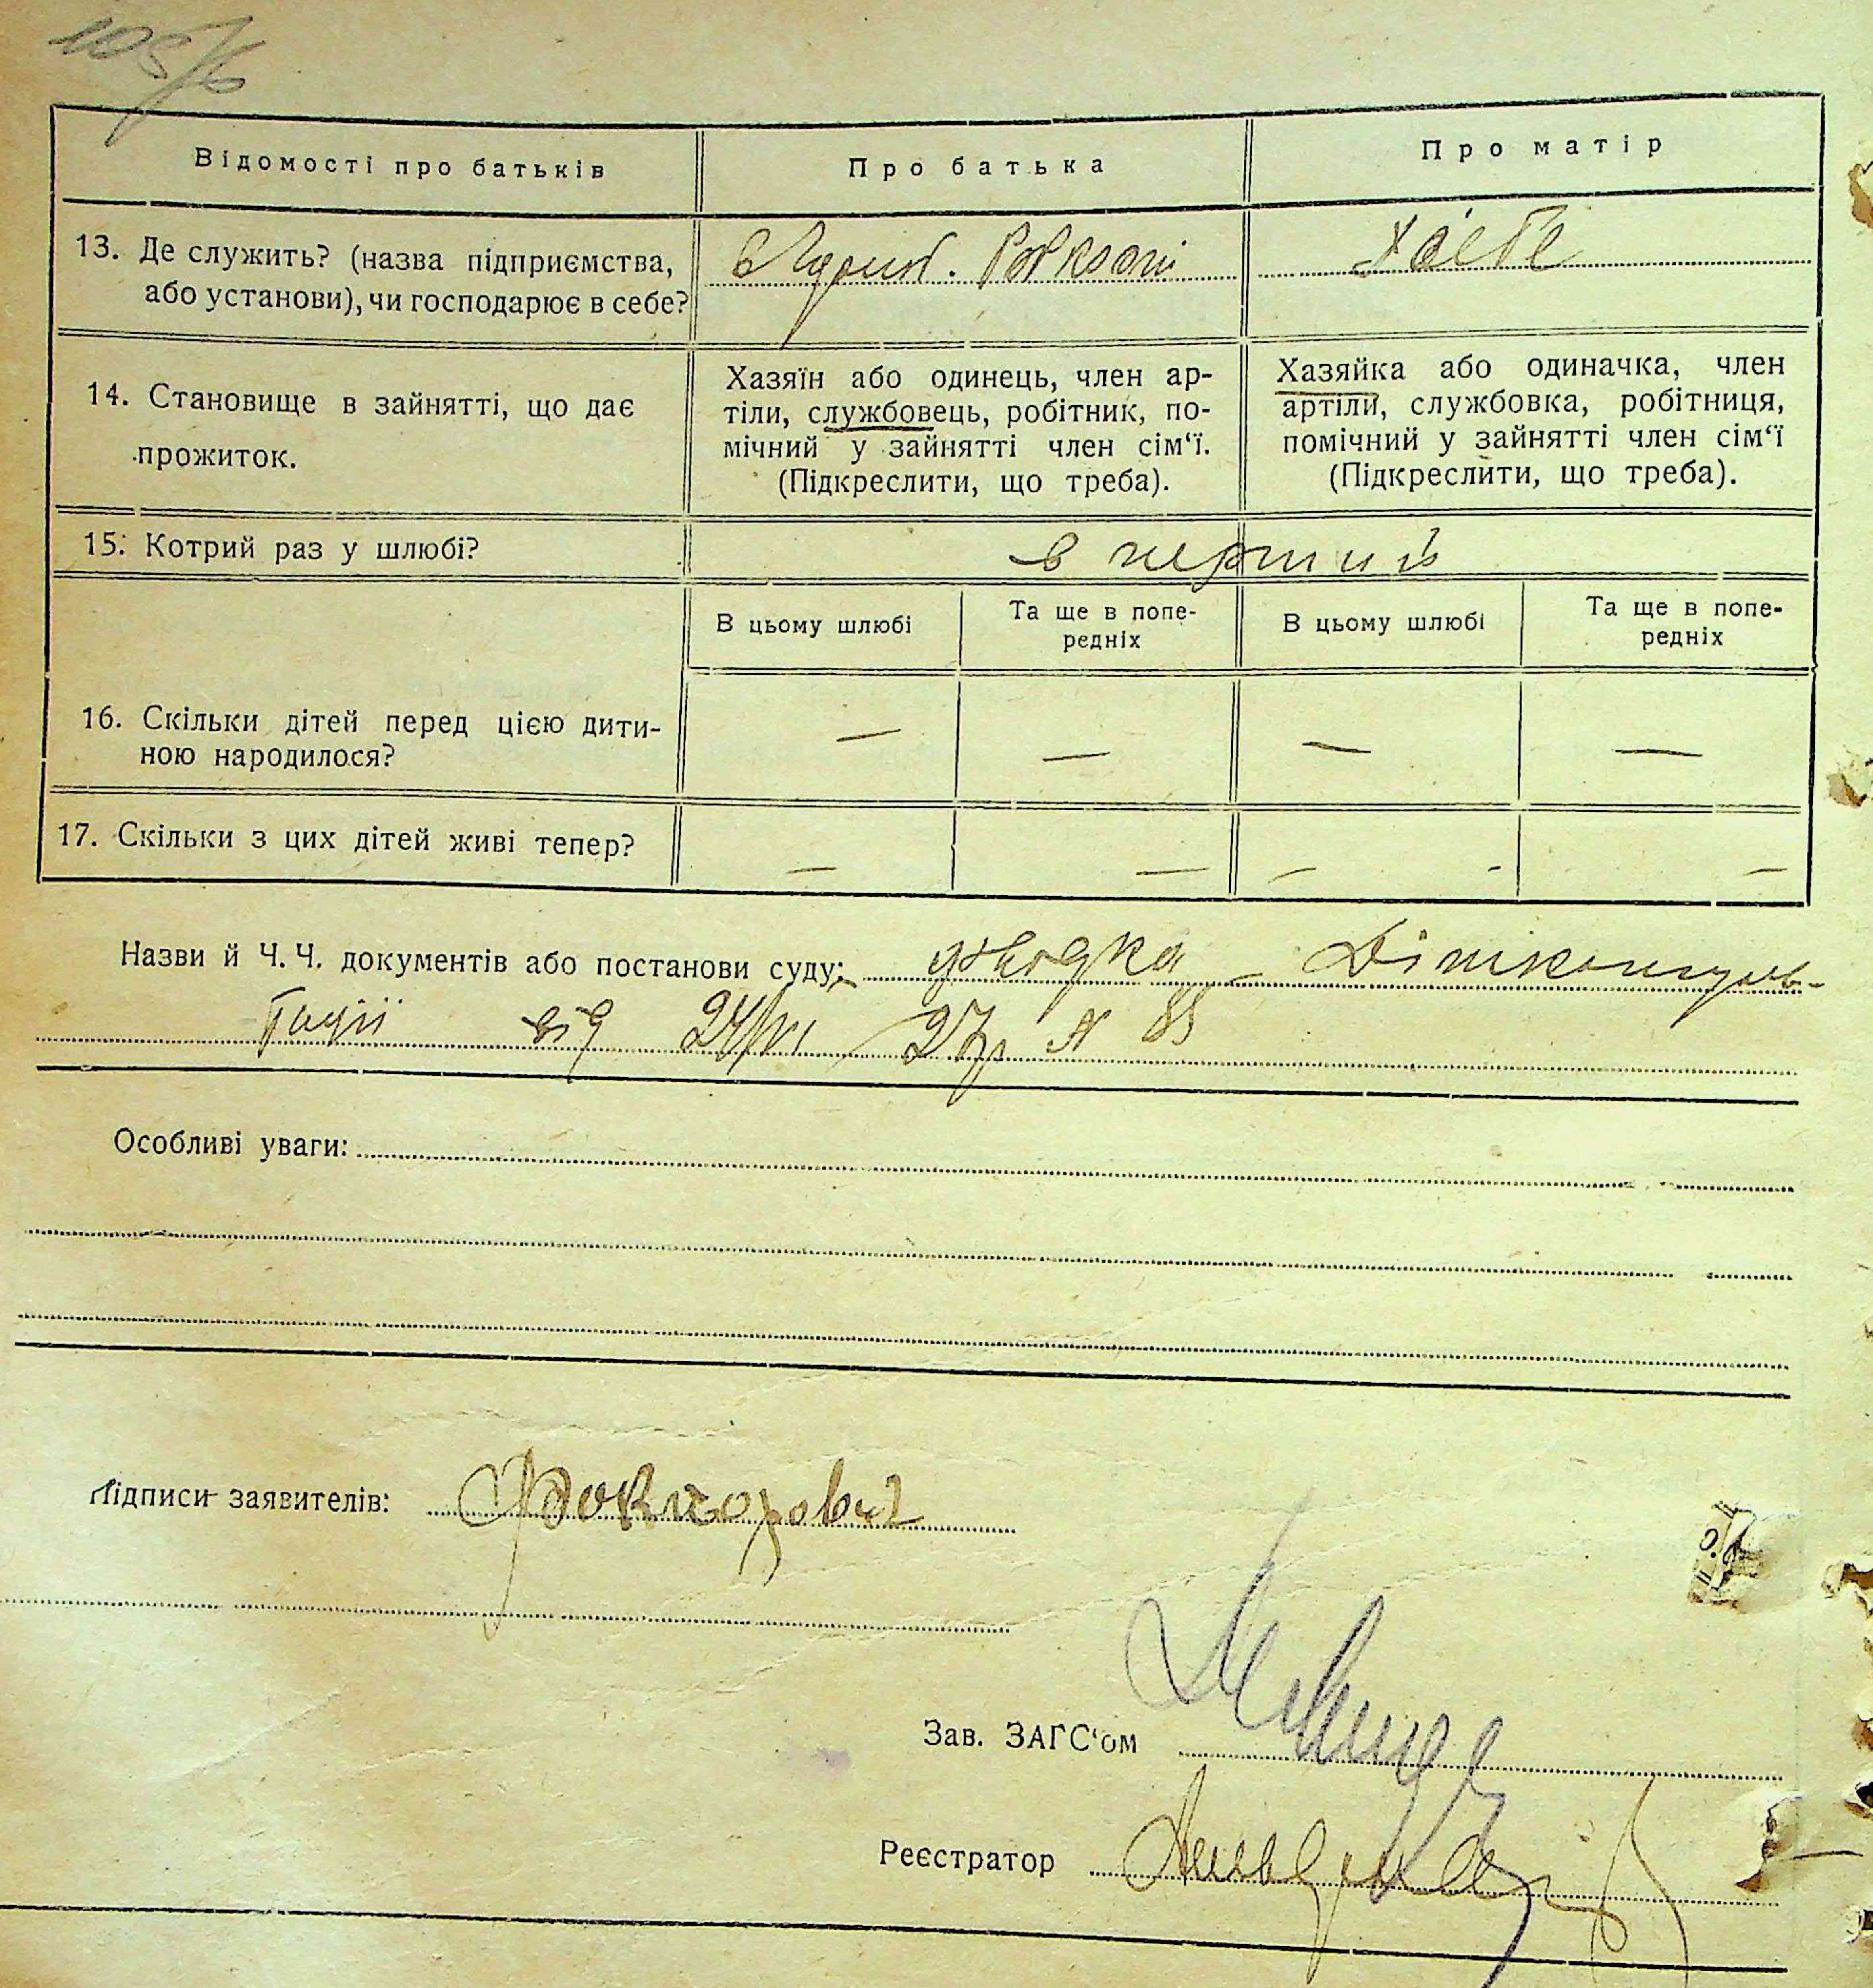 Відомості про батьків
Про батька
Про матір
13. Де служить? (назва підприємства,
або установи), чи господарює в себе?
14. Становище в зайнятті, що дає
прожиток.
Хазяїн або одинець, член ар-
тіли, службовець, робітник, по-
мічний у зайнятті член сім‘ї.
(Підкреслити, що треба).
Хазяйка або одиначка, член
артіли, службовка, робітниця,
помічний у зайнятті член сім‘ї
(Підкреслити, що треба).
15. Котрий раз у шлюбі?
в перший
В цьому шлюбі
Та ще в попе-
редніх
В цьому шлюбі
Та ще в попе-
редніх
16. Скільки дітей перед цією дити-
ною народилося?
— — — —
17. Скільки з цих дітей живі тепер?
— — – - –
Назви й Ч. Ч. документів або постанови суду:
від 24/VI 27р N 85
Особливі уваги:
Підписи заявителів:
Зав. ЗАГС‘ом
Реєстратор